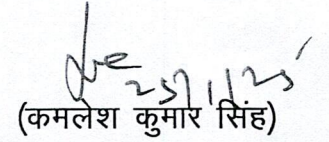 25/1/25
(कमलेश कुमार सिंह)